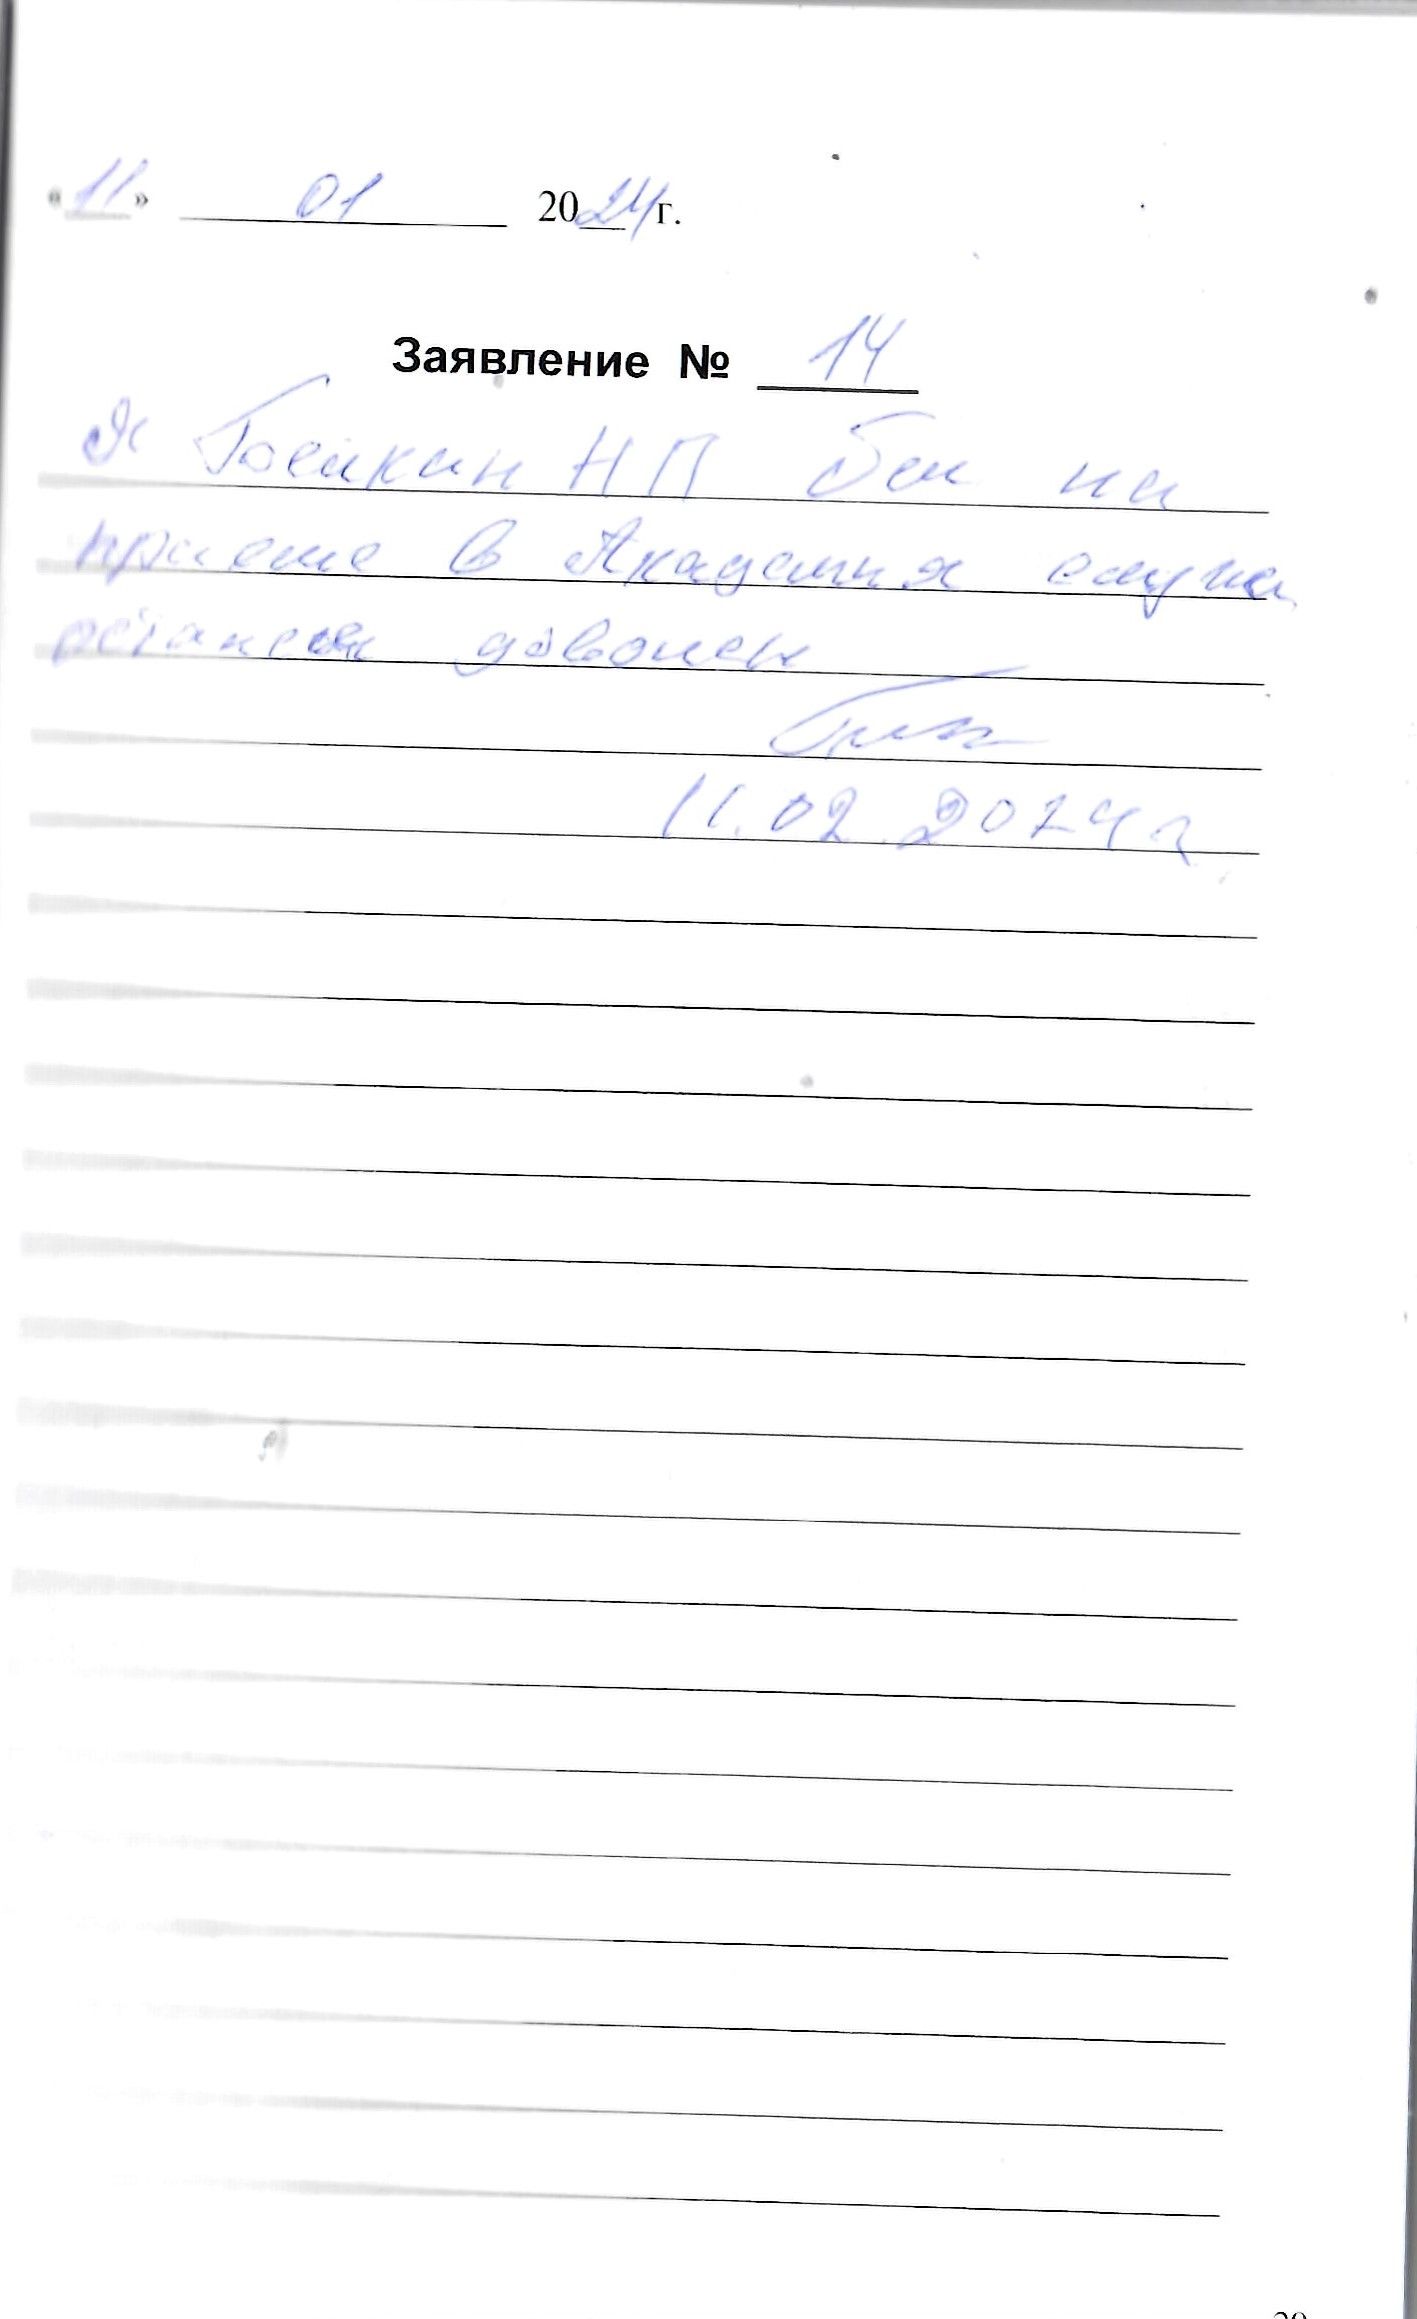 «11» 01 2024 г.
Заявление № 14
Я НП был на
приеме в Академия слуха
остался доволен
11.02.2024г